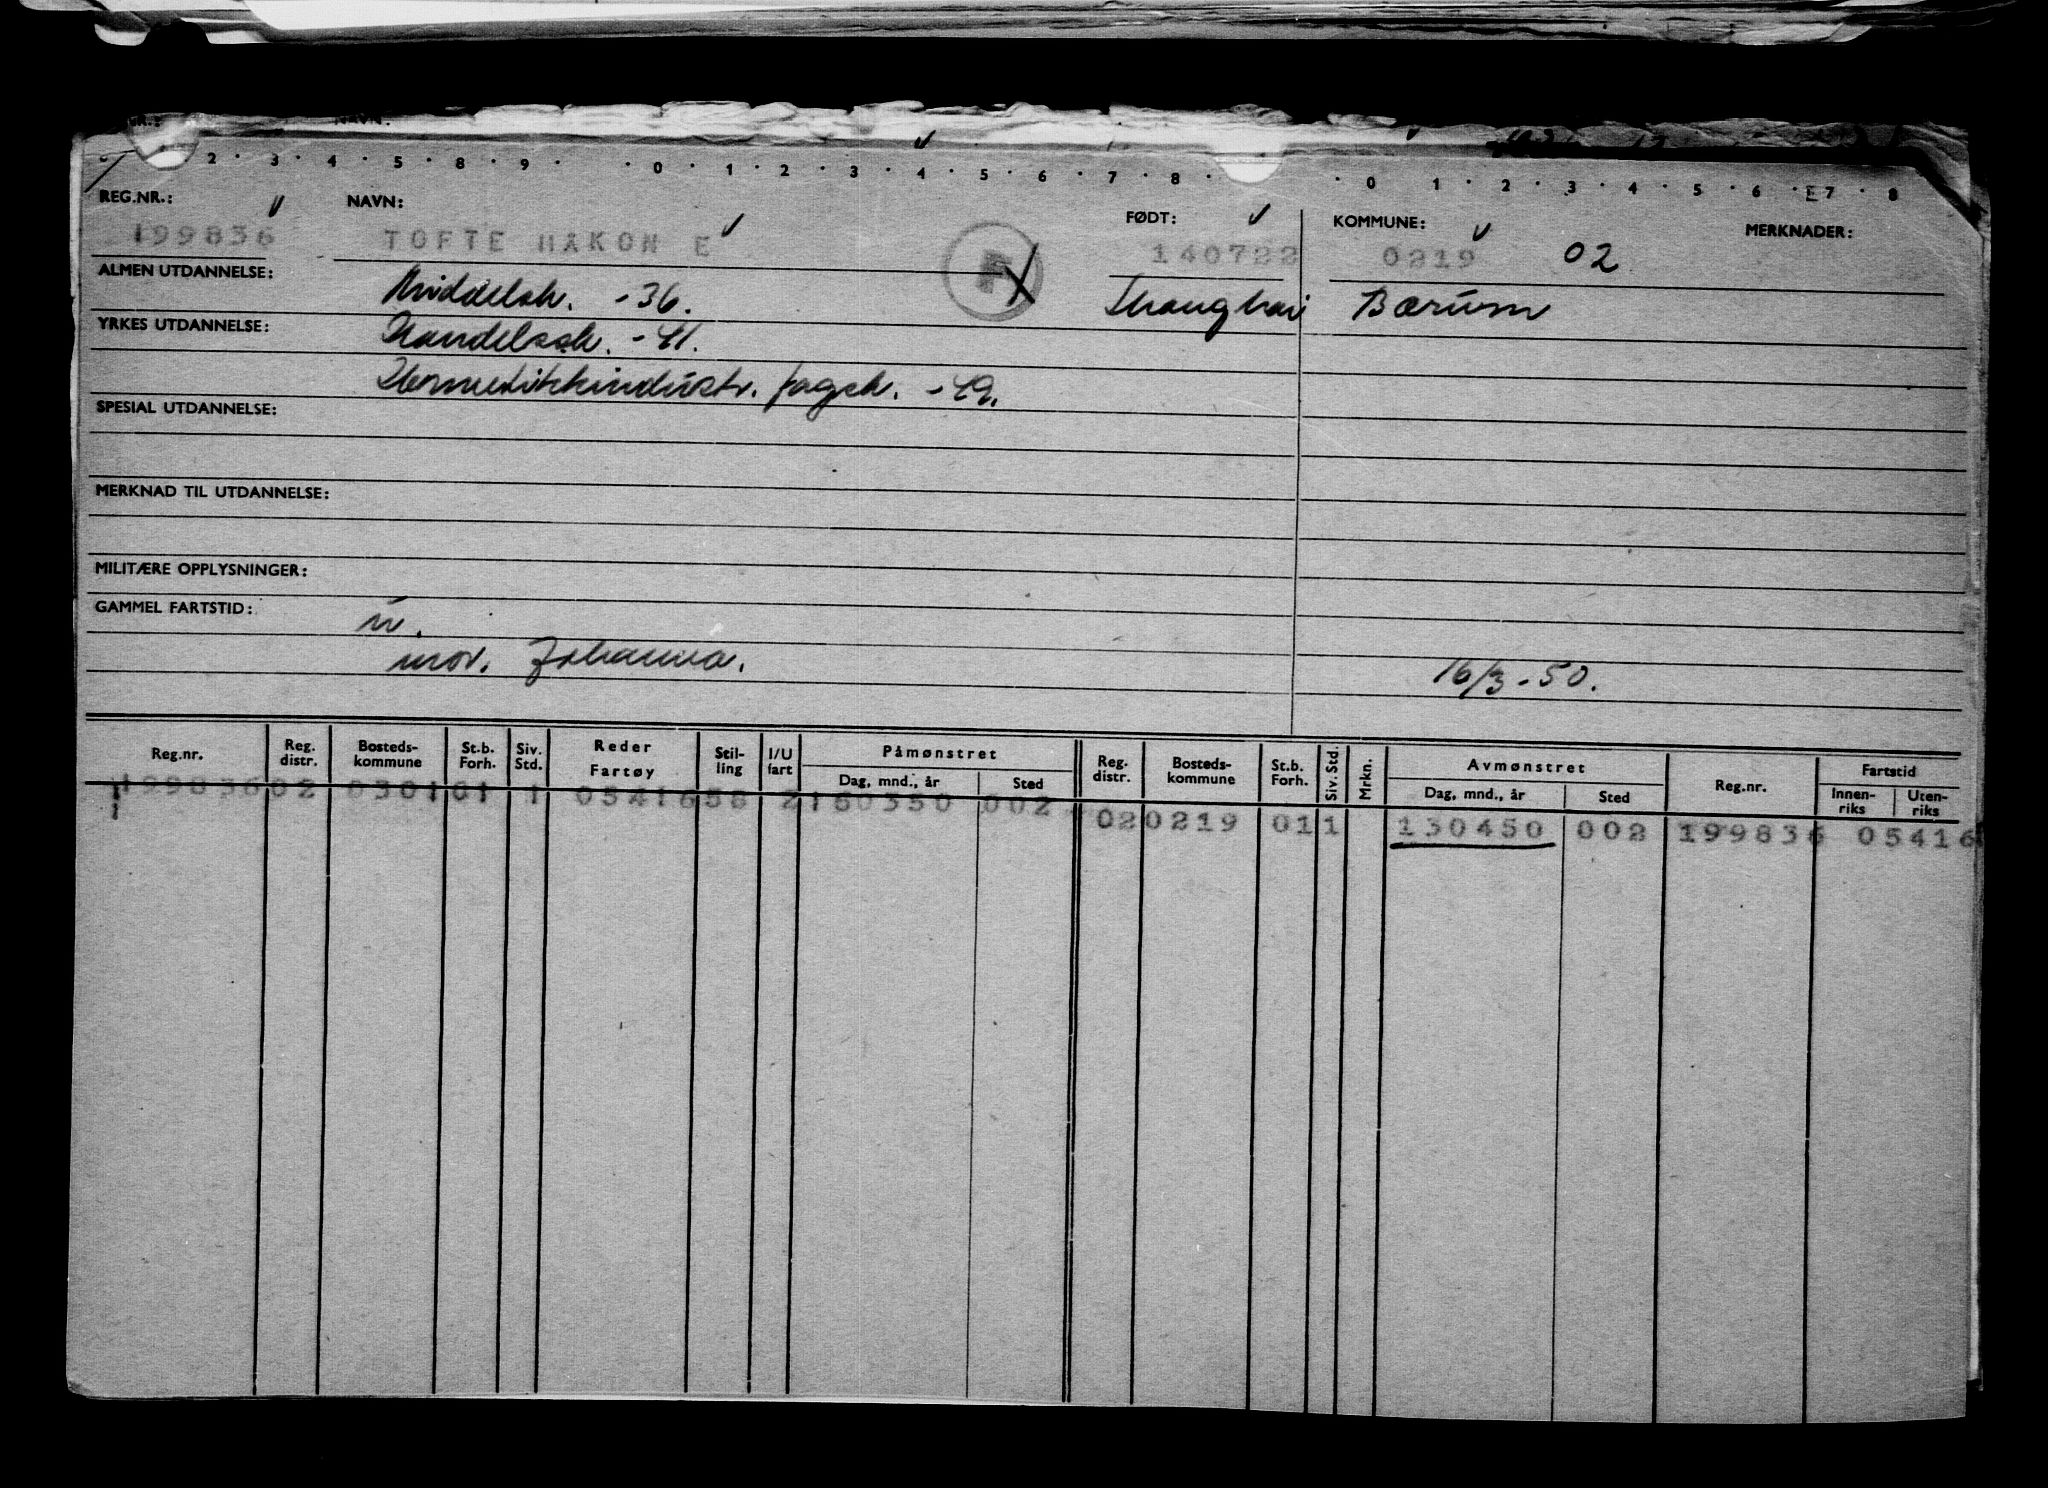 NR.: NAVN:
2 · 3 · 4 · 5 · 8 · 9 · · 0 · 1 · 2 · 3 · 4 · 5 · 6 · 7 · 8 · · 0 · 1 · 2 · 3 · 4 · 5 · 6 · 7 · 8
REG.NR.: NAVN: FØDT: KOMMUNE: MERKNADER:
199836 TOFTE HAKON E F 140722 0219 02
ALMEN UTDANNELSE: Middelsk. -36. Shanghai Bærum
YRKES UTDANNELSE: Handelssk. -41.
Hermetikkindustr. fagsk. -49.
SPESIAL UTDANNELSE:
MERKNAD TIL UTDANNELSE:
MILITÆRE OPPLYSNINGER:
GAMMEL FARTSTID:
mor. Johanna. 16/3 - 50.
Reg.nr. Reg. distr. Bosteds-kommune St.b. Forh. Siv. Std. Reder Fartøy Stil-ling I/U fart Påmønstret Dag, mnd., år Sted Reg. distr. Bosteds-kommune St.b. Forh. Siv. Std. Mrkn. Avmønstret Dag, mnd., år Sted Reg.nr. Fartstid Innen-riks Uten-riks
199836 02 0301 01 1 05416 58 2 160350 002
02 0219 01 1 130450 002 199836 05416